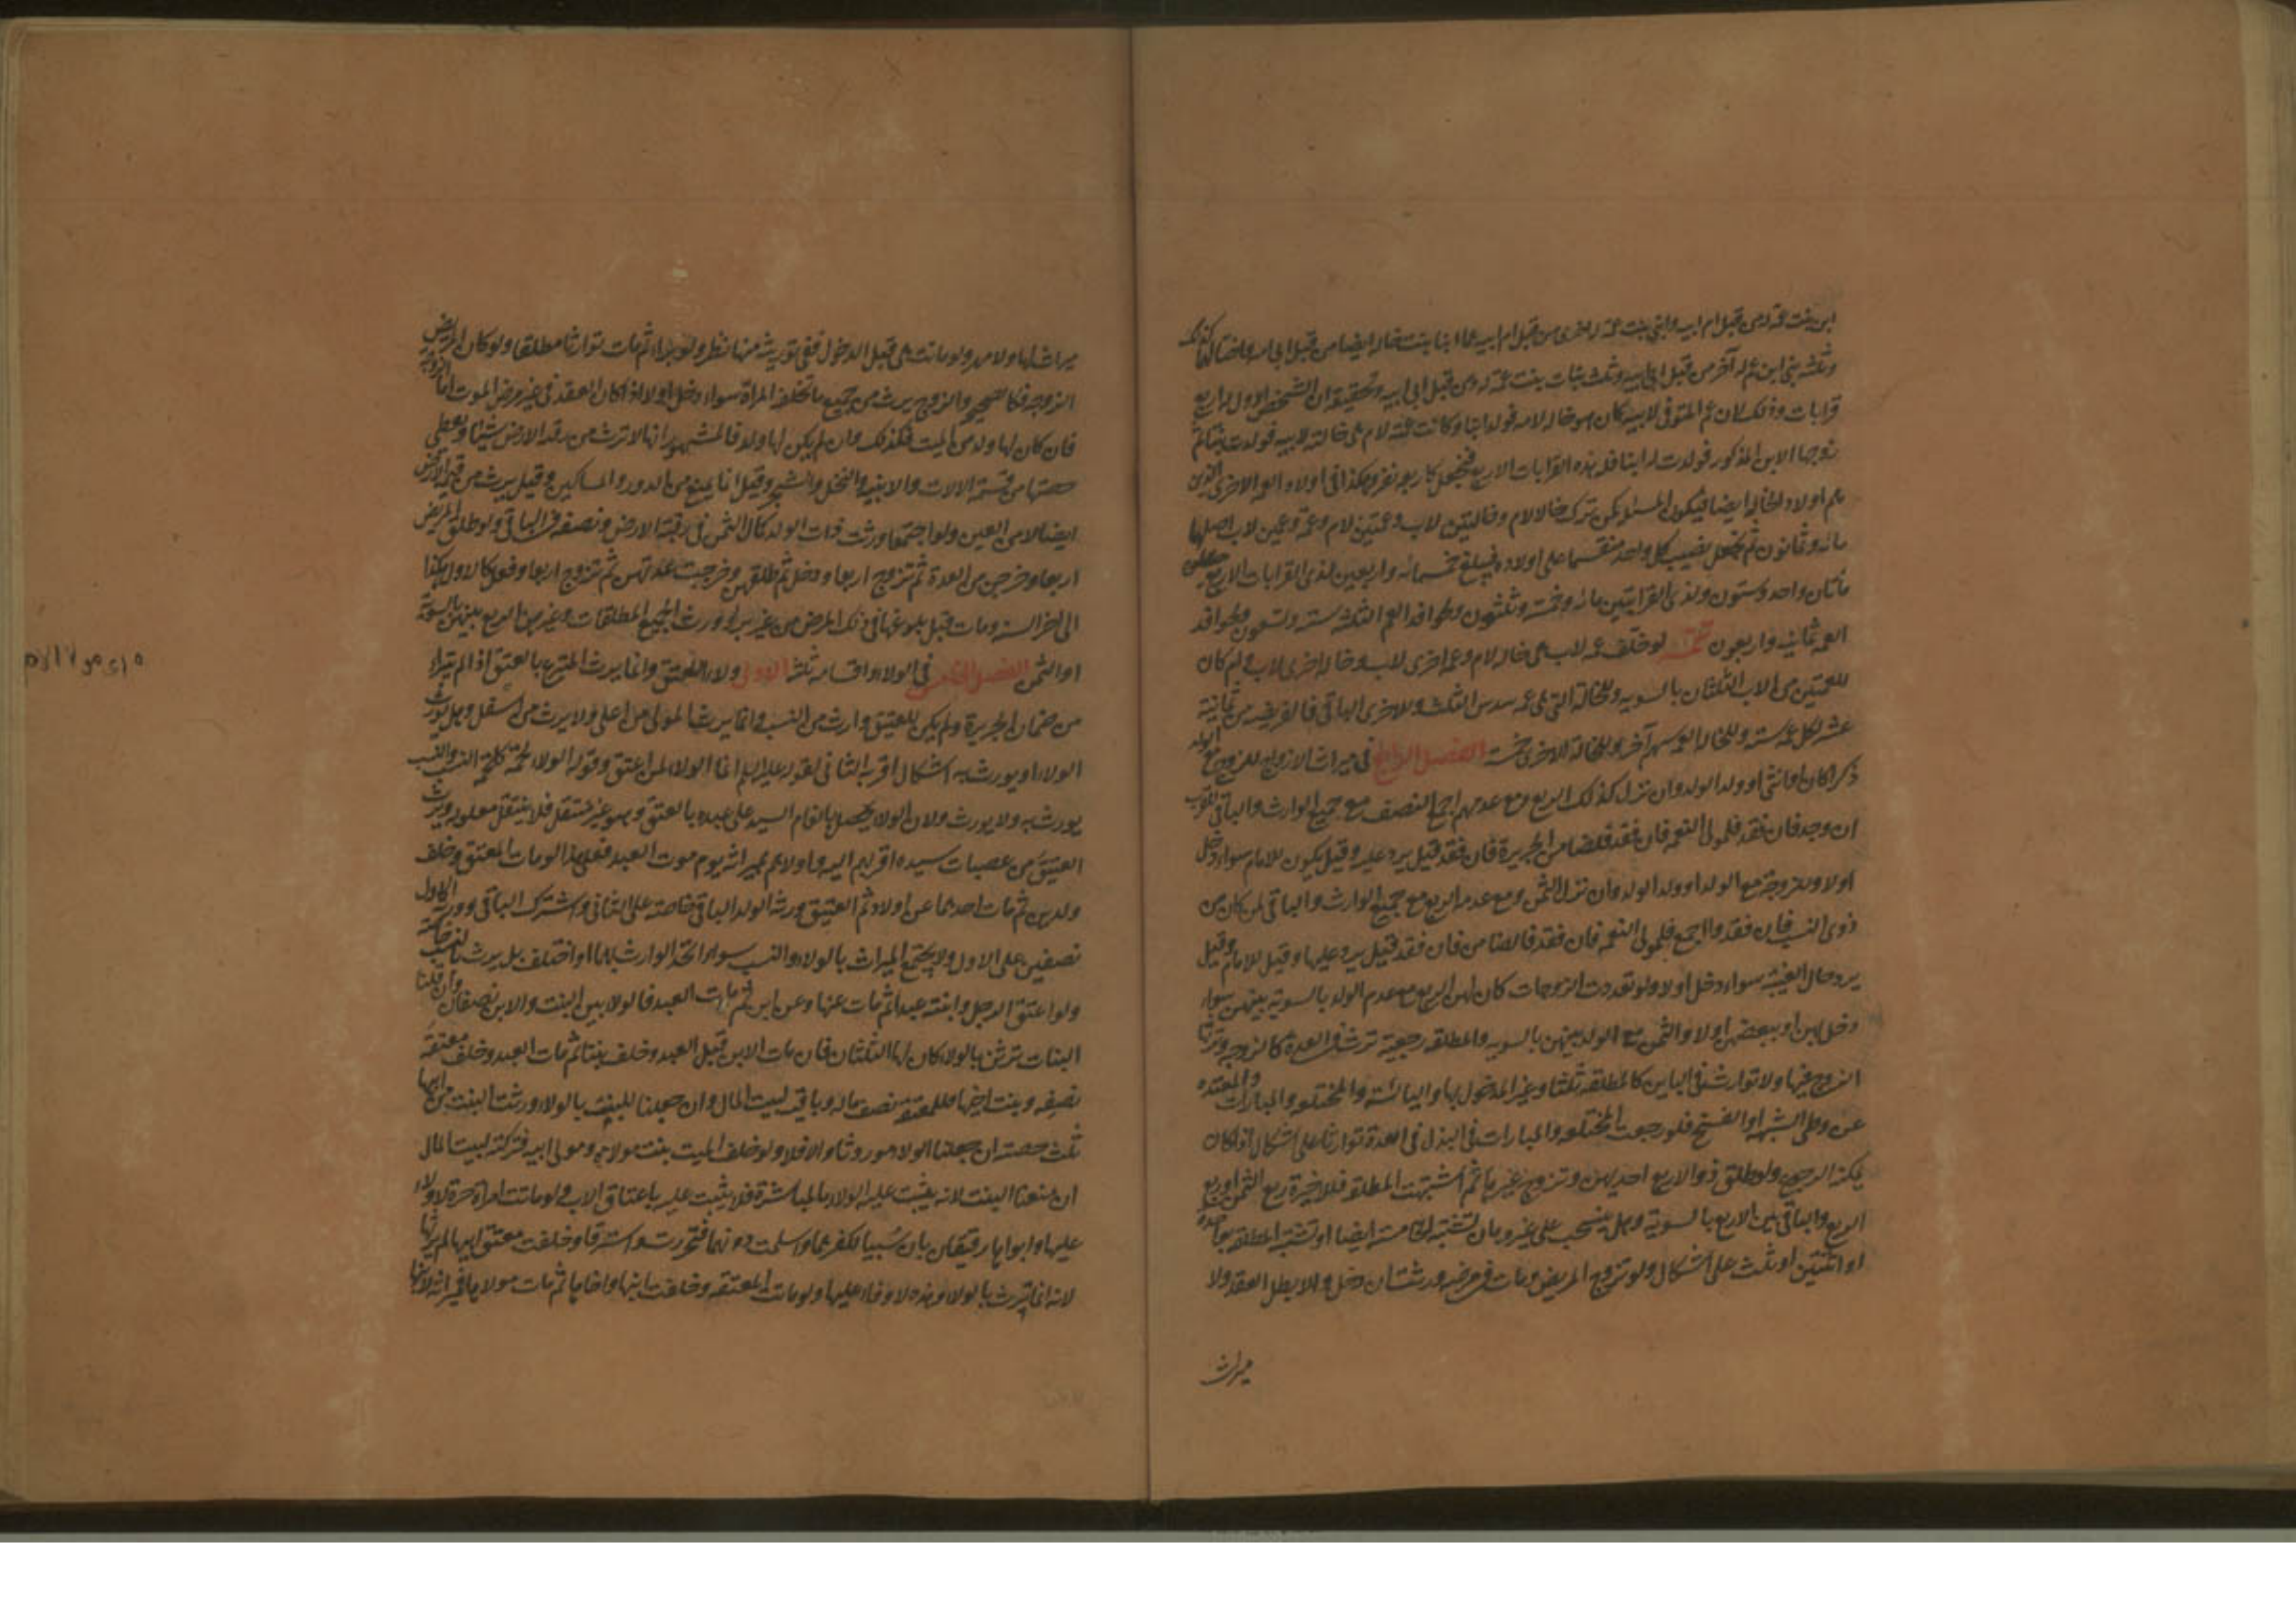 ابن بنت عمة له من قبل ام ابيه وابني بنت عمة له اخرى من قبل ام ابيه هما ابنا بنت خالة ايضا من قبل ابي امه
وثلثة بني ابن عم له آخر من قبل ابي ابيه وثلث بنات بنت عمة له من قبل ابي ابيه وتحقيقه ان الشخص الاول له اربع
قرابات وذلك لان عم المتوفى لابيه كان هو خاله لامه فولد ابنا وكانت عمته لام هي خالته لابيه فولدت بنتا ثم
تزوجها الابن المذكور فولدت له ابنا فله هذه القرابات الاربع فيجعل كاربعة نفر وهكذا في اولاد العمة الاخرى الذين
هم اولاد الخالة ايضا فيكون المسئلة كمن ترك خالا لام وخالتين لاب وعمتين لام وعمة وعمين لاب اصلها
مائة وثمانون ثم يجعل نصيب كل واحد منقسما على اولاده فيبلغ خمسمائة واربعين لذي القرابات الاربع
مأتان واحد وستون ولذي القرابتين مائة وخمسة وثلثون وحوافد العم الثلثة ستة وتسعون ولحوافد
العمة ثمانية واربعون تتمة لو خلف عمة لاب هي خالة لام وعمة اخرى لاب وخالة اخرى لاب وام كان
للعمتين من الاب الثلثان بالسوية وللخالة التي هي عمة سدس الثلث وللاخرى الباقي فالفريضة من ثمانية
عشر لكل عمة ستة وللخالة العمة سهم آخر وللخالة الاخرى خمسة الفصل الرابع في ميراث الازواج للزوج مع الولد
ذكرا كان او انثى او ولد الولد وان نزل كذلك الربع ومع عدمهم اجمع النصف مع جميع الوارث والباقي للقريب
ان وجد فان فقد فلمولى النعمة فان فقد فلضامن الجريرة فان فقد قيل يرد عليه وقيل يكون للامام سواء دخل
اولا وللزوجة مع الولد او ولد الولد وان نزل الثمن ومع عدمه الربع مع جميع الوارث والباقي لمن كان من
ذوي النسب فان فقدوا اجمع فلمولى النعمة فان فقد فالضامن فان فقد قيل يرد عليها وقيل للامام وقيل
يرد حال الغيبة سواء دخل اولا ولو تعددت الزوجات كان لهن الربع مع عدم الولد بالسوية بينهن سواء
دخل بهن او ببعضهن اولا والثمن مع الولد بينهن بالسوية والمطلقة رجعية ترث في العدة كالزوجة ويرثها
الزوج فيها ولا توارث في الباين كالمطلقة ثلثا وغير المدخول بها واليائسة والمختلعة والمبارات والمعتدة
عن وطي الشبهة او الفسخ فلو رجعت المختلعة والمبارات في البذل في العدة توارثا على اشكال اذا كان
يمكنه الرجوع ولو طلق ذو الاربع احديهن وتزوج غيرها ثم اشتبهت المطلقة فللاخيرة ربع الثمن او ربع
الربع والباقي بين الاربع بالسوية وهل ينسحب على غيره بان تشتبه الخامسة ايضا او تشتبه المطلقة بواحدة
او اثنتين او ثلث على اشكال ولو تزوج المريض ومات في مرضه ورثت ان دخل والا بطل العقد ولا
ميراث
ميراث لها ولا مهر ولو ماتت هي قبل الدخول ففي توريثه منها نظر ولو برا ثم مات توارثا مطلقا ولو كان المريض
الزوجة فكالصحيح والزوج يرث من جميع ما تخلفه المرأة سواء دخل اولا اذا كان العقد في غير مرض الموت اما الزوجة
فان كان لها ولد من الميت فكذلك وان لم يكن لها ولد فالمشهور انها لا ترث من رقبة الارض شيئا وتعطى
حصتها من قيمة الالات والابنية والنخل والشجر وقيل انما يمنع من الدور والمساكين وقيل يرث من قيمة الارض
ايضا لا من العين ولو اجتمعتا ورثت ذات الولد كمال الثمن في رقبة الارض ونصفه في الباقي ولو طلق المريض
اربعا وخرجن من العدة ثم تزوج اربعا ودخل ثم طلقهن وخرجت عدتهن ثم تزوج اربعا وفعل كالاول وهكذا
الى اخر السنة ومات قبل بلوغها في ذلك المرض من غير برء ورث الجميع المطلقات وغيرهن الربع بينهن بالسوية
او الثمن الفصل الخامس في الولاء واقسامه ثلثة الاول ولاء العتق وانما يرث المتبرع بالعتق اذا لم يتبرأ
من ضمان الجريرة ولم يكن للعتيق وارث من النسب وانما يرث المولى من اعلى ولا يرث من اسفل وهل يورث
الولاء او يورث به اشكال اقربه الثاني لقوله عليه السلم انما الولاء لمن اعتق وقوله الولاء لحمة كلحمة النسب والنسب
يورث به ولا يورث ولان الولاء يحصل بانعام السيد على عبده بالعتق وهو غير منتقل فلا ينتقل معلوله ويرث
العتيق من عصبات سيده اقربهم اليه واولاهم بميراثه يوم موت العبد فعلى هذا لو مات المعتق وخلف
ولدين ثم مات احدهما عن اولاد ثم العتيق ورثه الولد الباقي خاصة على الثاني واشترك الباقي وورثة الاول
نصفين على الاول ولا يجتمع الميراث بالولاء والنسب سواء اتحد الوارث بهما او اختلف بل يرث النسب خاصة
ولو اعتق الرجل وابنته عبدا ثم مات عنها وعن ابن ثم مات العبد فالولاء بين البنت والابن نصفان وان قلنا
البنات ترثن بالولاء كان لها الثلثان فان مات الابن قبل العبد وخلف بنتا ثم مات العبد وخلف معتقة
نصفه وبنت اخيها فللمعتقة نصف ماله وباقيه لبيت المال وان جعلنا للبنت بالولاء ورثت البنت من ابيها
ثلث حصته ان جعلنا الولاء موروثا والا فلا ولو خلف الميت بنت مولاه ومولى ابيه فتركته لبيت المال
ان منعنا البنت لانه يثبت عليه الولاء بالمباشرة فلا يثبت عليه باعتاق الاب ولو ماتت امرأة حرة لا ولاء
عليها وابواها رقيقان بان سبيا لكفرهما واسلمت دونهما فتحررت واسترقا وخلفت معتق ابيها لم يرثها
لانه انما يرث بالولاء وهذه لا ولاء عليها ولو مات المعتقة وخلفت ابنها واخاها ثم مات مولاها فميراثه لابنها